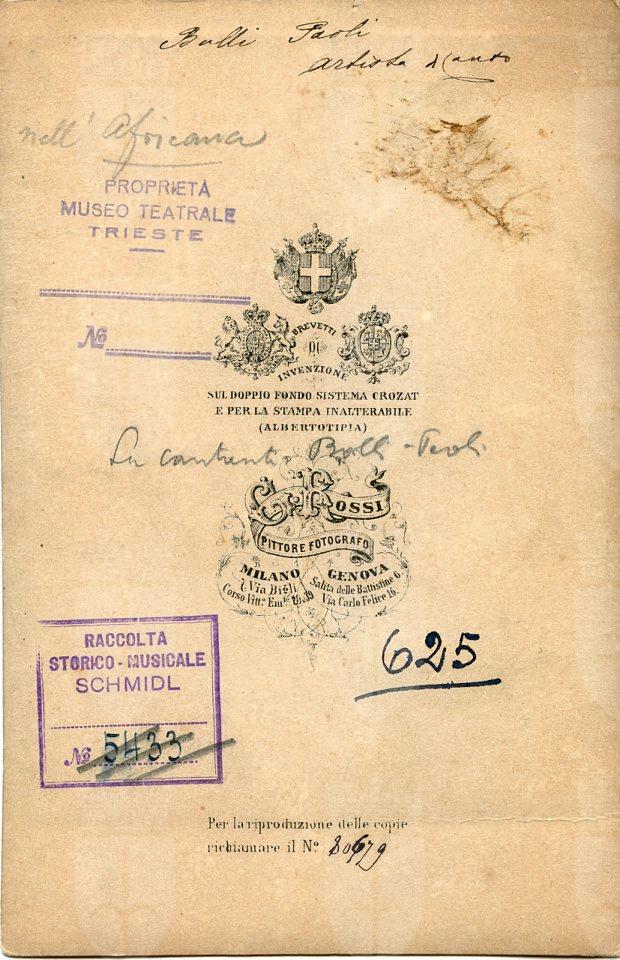 Bulli Paoli
artista di canto
nell' Africana
PROPRIETÀ
MUSEO TEATRALE
TRIESTE
No
BREVETTI
DI
INVENZIONE
SUL DOPPIO FONDO SISTEMA CROZAT
E PER LA STAMPA INALTERABILE
(ALBERTOTIPIA)
cantanti
G. ROSSI
PITTORE FOTOGRAFO
MILANO
Via Bigli
Corso Vitt.o Em.le
GENOVA
Salita delle Battistine 6
Via Carlo Felice 16.
625
RACCOLTA
STORICO-MUSICALE
SCHMIDL
No 5433
Per la riproduzione delle copie
richiamare il No